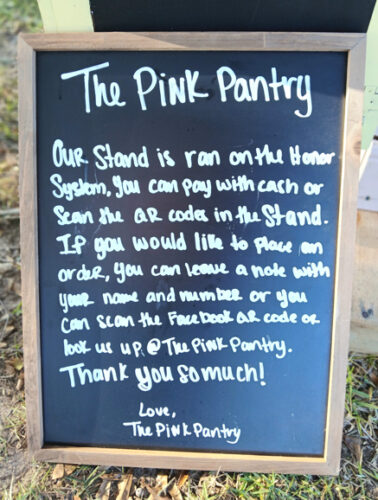 The Pink Pantry
Our Stand is ran on the Honor
System, you can pay with cash or
Scan the QR codes in the Stand.
If you would like to place an
order, you can leave a note with
your name and number or you
can scan the Facebook QR code or
look us up @ThePinkPantry.
Thank you so much!
Love,
The Pink Pantry